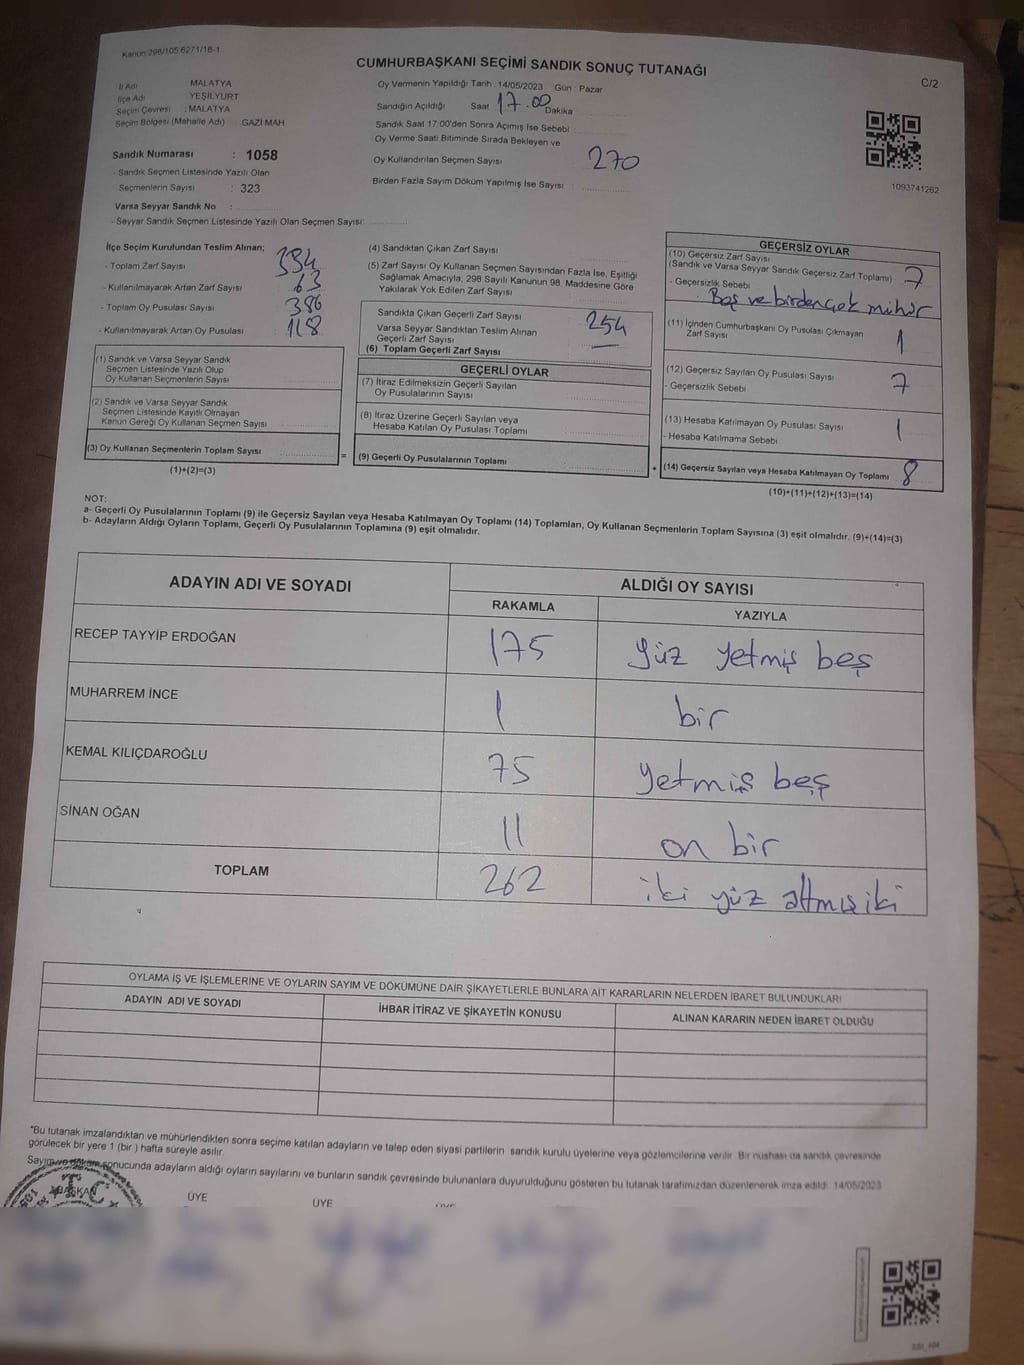 Kanun 298/105:6271/18-1
CUMHURBAŞKANI SEÇİMİ SANDIK SONUÇ TUTANAĞI
C/2
İl Adı : MALATYA
İlçe Adı : YEŞİLYURT
Seçim Çevresi : MALATYA
Seçim Bölgesi (Mahalle Adı) : GAZİ MAH
Oy Vermenin Yapıldığı Tarih : 14/05/2023 Gün : Pazar
Sandığın Açıldığı Saat 17.00 Dakika
Sandık Saat 17:00'den Sonra Açımış İse Sebebi :
Oy Verme Saati Bitiminde Sırada Bekleyen ve
Oy Kullandırılan Seçmen Sayısı 270
Birden Fazla Sayım Döküm Yapılmış İse Sayısı :
1093741262
Sandık Numarası : 1058
- Sandık Seçmen Listesinde Yazılı Olan
Seçmenlerin Sayısı : 323
Varsa Seyyar Sandık No :
- Seyyar Sandık Seçmen Listesinde Yazılı Olan Seçmen Sayısı:
İlçe Seçim Kurulundan Teslim Alınan;
- Toplam Zarf Sayısı 334
- Kullanılmayarak Artan Zarf Sayısı 63
- Toplam Oy Pusulası Sayısı 386
- Kullanılmayarak Artan Oy Pusulası 118
(1) Sandık ve Varsa Seyyar Sandık
Seçmen Listesinde Yazılı Olup
Oy Kullanan Seçmenlerin Sayısı
(2) Sandık ve Varsa Seyyar Sandık
Seçmen Listesinde Kayıtlı Olmayan
Kanun Gereği Oy Kullanan Seçmen Sayısı
(3) Oy Kullanan Seçmenlerin Toplam Sayısı
(1)+(2)=(3)
=
(4) Sandıktan Çıkan Zarf Sayısı
(5) Zarf Sayısı Oy Kullanan Seçmen Sayısından Fazla İse, Eşitliği
Sağlamak Amacıyla, 298 Sayılı Kanunun 98. Maddesine Göre
Yakılarak Yok Edilen Zarf Sayısı
Sandıkta Çıkan Geçerli Zarf Sayısı 254
Varsa Seyyar Sandıktan Teslim Alınan
Geçerli Zarf Sayısı
(6) Toplam Geçerli Zarf Sayısı
GEÇERLİ OYLAR
(7) İtiraz Edilmeksizin Geçerli Sayılan
Oy Pusulalarının Sayısı
(8) İtiraz Üzerine Geçerli Sayılan veya
Hesaba Katılan Oy Pusulası Toplamı
(9) Geçerli Oy Pusulalarının Toplamı
+
GEÇERSİZ OYLAR
(10) Geçersiz Zarf Sayısı
(Sandık ve Varsa Seyyar Sandık Geçersiz Zarf Toplamı) 7
- Geçersizlik Sebebi
Boş ve birden çok mühür
(11) İçinden Cumhurbaşkanı Oy Pusulası Çıkmayan
Zarf Sayısı 1
(12) Geçersiz Sayılan Oy Pusulası Sayısı 7
- Geçersizlik Sebebi
(13) Hesaba Katılmayan Oy Pusulası Sayısı 1
- Hesaba Katılmama Sebebi
(14) Geçersiz Sayılan veya Hesaba Katılmayan Oy Toplamı 8
(10)+(11)+(12)+(13)=(14)
NOT:
a- Geçerli Oy Pusulalarının Toplamı (9) ile Geçersiz Sayılan veya Hesaba Katılmayan Oy Toplamı (14) Toplamları, Oy Kullanan Seçmenlerin Toplam Sayısına (3) eşit olmalıdır. (9)+(14)=(3)
b- Adayların Aldığı Oyların Toplamı, Geçerli Oy Pusulalarının Toplamına (9) eşit olmalıdır.
ADAYIN ADI VE SOYADI ALDIĞI OY SAYISI
RAKAMLA YAZIYLA
RECEP TAYYİP ERDOĞAN 175 yüz yetmiş beş
MUHARREM İNCE 1 bir
KEMAL KILIÇDAROĞLU 75 yetmiş beş
SİNAN OĞAN 11 on bir
TOPLAM 262 iki yüz altmış iki
OYLAMA İŞ VE İŞLEMLERİNE VE OYLARIN SAYIM VE DÖKÜMÜNE DAİR ŞİKAYETLERLE BUNLARA AİT KARARLARIN NELERDEN İBARET BULUNDUKLARI
ADAYIN ADI VE SOYADI İHBAR İTİRAZ VE ŞİKAYETİN KONUSU ALINAN KARARIN NEDEN İBARET OLDUĞU
"Bu tutanak imzalandıktan ve mühürlendikten sonra seçime katılan adayların ve talep eden siyasi partilerin sandık kurulu üyelerine veya gözlemcilerine verilir. Bir nüshası da sandık çevresinde
görülecek bir yere 1 (bir ) hafta süreyle asılır.
Sayım ve döküm sonucunda adayların aldığı oyların sayılarını ve bunların sandık çevresinde bulunanlara duyurulduğunu gösteren bu tutanak tarafımızdan düzenlenerek imza edildi. 14/05/2023
BAŞKAN ÜYE ÜYE
T.C.